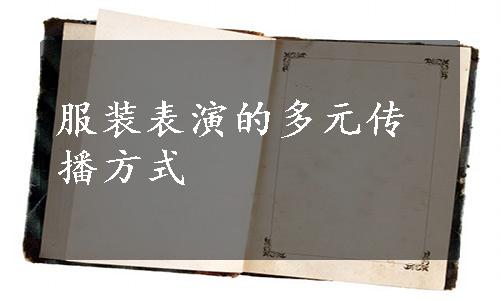 服装表演的多元传
播方式